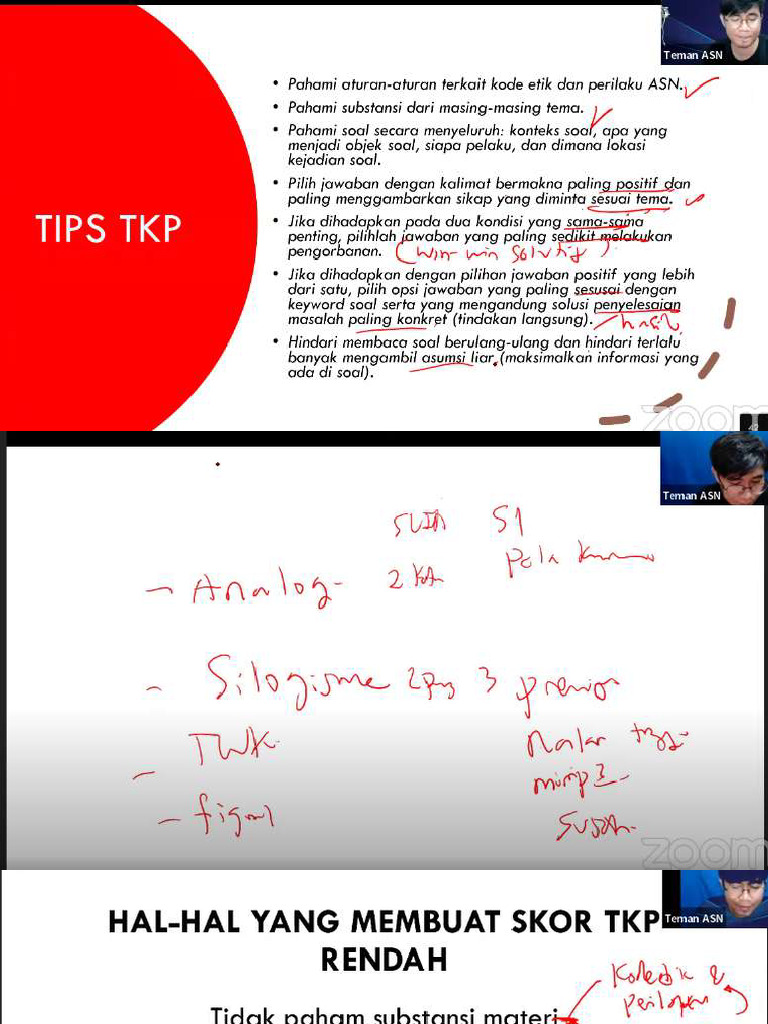 Teman ASN
TIPS TKP
• Pahami aturan-aturan terkait kode etik dan perilaku ASN.
• Pahami substansi dari masing-masing tema.
• Pahami soal secara menyeluruh: konteks soal, apa yang
menjadi objek soal, siapa pelaku, dan dimana lokasi
kejadian soal.
• Pilih jawaban dengan kalimat bermakna paling positif dan
paling menggambarkan sikap yang diminta sesuai tema.
• Jika dihadapkan pada dua kondisi yang sama-sama
penting, pilihlah jawaban yang paling sedikit melakukan
pengorbanan. (win-win solutif)
• Jika dihadapkan dengan pilihan jawaban positif yang lebih
dari satu, pilih opsi jawaban yang paling sesusai dengan
keyword soal serta yang mengandung solusi penyelesaian
masalah paling konkret (tindakan langsung). hasil
• Hindari membaca soal berulang-ulang dan hindari terlalu
banyak mengambil asumsi liar (maksimalkan informasi yang
ada di soal).
zoom
Teman ASN
S1
- Analog- 2
Pola
- Silogisme 3 premis
- TWK
Nalar
mirip2
- figural
susah
zoom
Teman ASN
HAL-HAL YANG MEMBUAT SKOR TKP
RENDAH
Kodetik &
perilaku
Tidak paham substansi materi